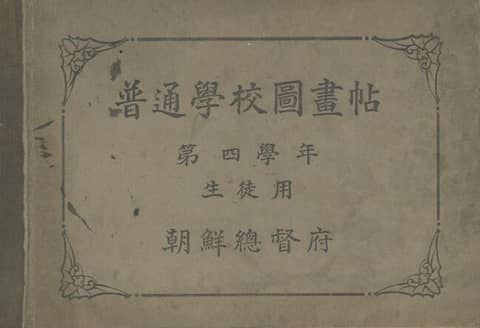 普通學校圖畫帖
第四學年
生徒用
朝鮮總督府